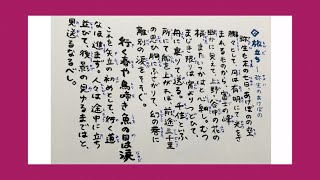 ◇旅立ち
弥生も末の七日、あけぼのの空
朧々として、月は有明にて光をさ
まれるものから、富士の峰
幽かに見えて、上野・谷中の花の
梢、またいつかはと心細し。むつ
まじき限りは宵よりつどひて、
舟に乗りて送る。千住といふ
所にて船を上がれば、前途三千里
の思ひ胸にふさがりて、幻の巷に
離別の涙をそそぐ。
行く春や鳥啼き魚の目は泪
これを矢立の初めとして、行く道
なほ進まず。人々は途中に立ち
並びて、後影の見ゆるまではと、
見送るなるべし。